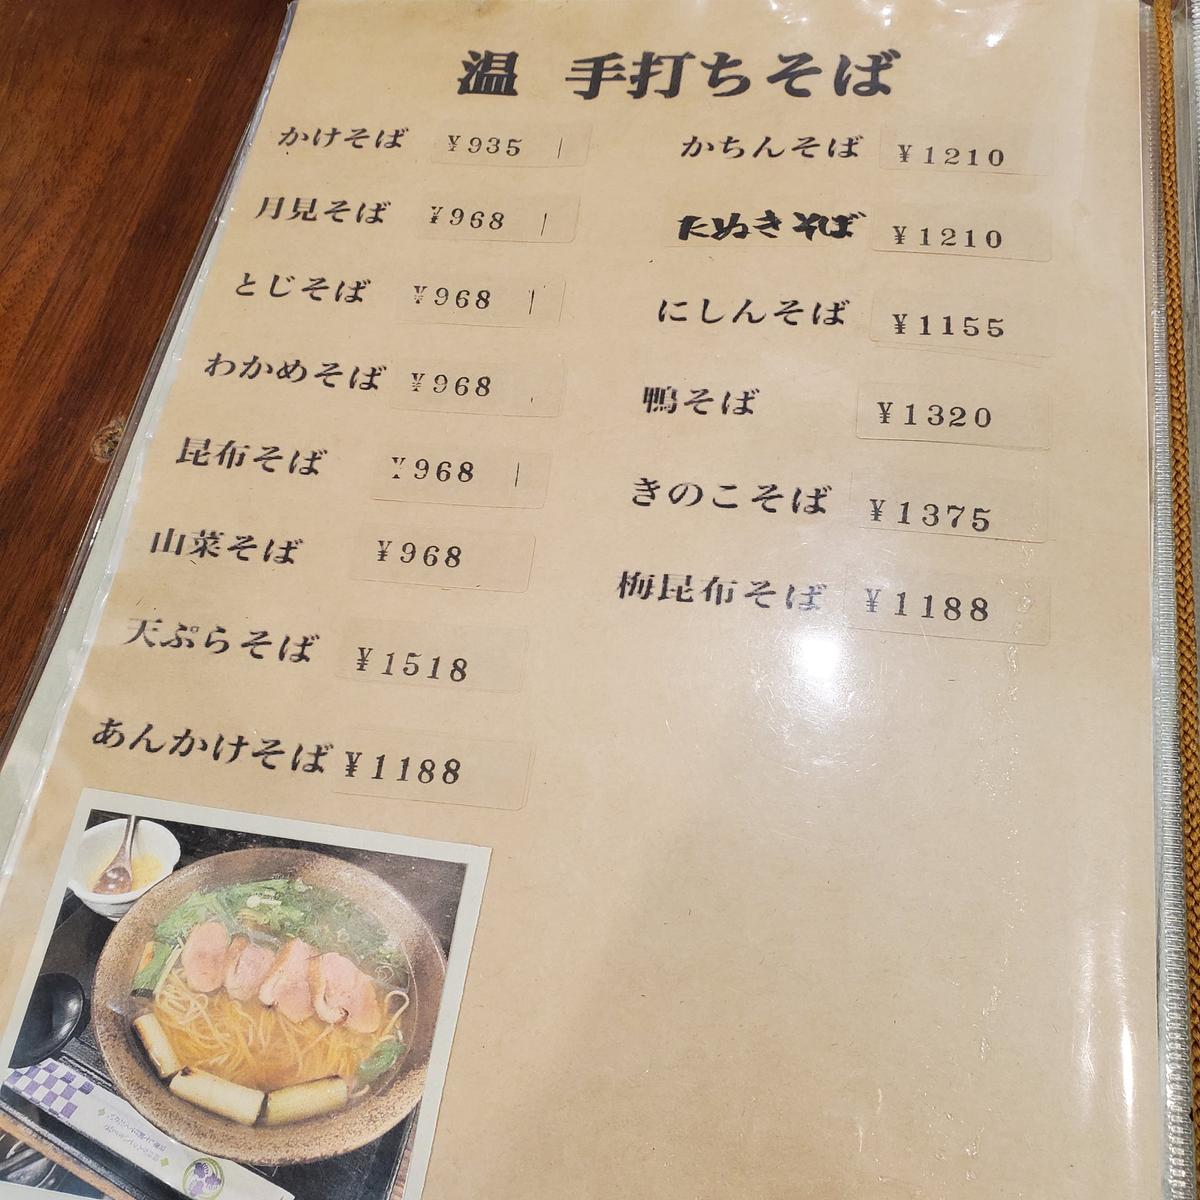 温 手打ちそば
かけそば ¥935
月見そば ¥968
とじそば ¥968
わかめそば ¥968
昆布そば ¥968
山菜そば ¥968
天ぷらそば ¥1518
あんかけそば ¥1188
かちんそば ¥1210
たぬきそば ¥1210
にしんそば ¥1155
鴨そば ¥1320
きのこそば ¥1375
梅昆布そば ¥1188